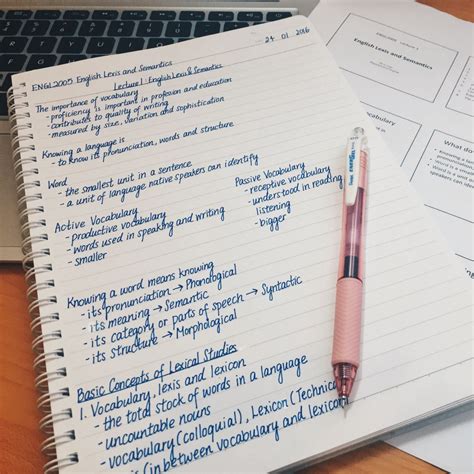 24.01.2016
ENGL2005 English Lexis and Semantics
Lecture 1: English Lexis & Semantics
The importance of vocabulary
- proficiency is important in profession and education
- contributes to quality of writing
- measured by size, variation and sophistication
Knowing a language is
- to know its pronunciation, words and structure
Word
- the smallest unit in a sentence
- a unit of language native speakers can identify
Active Vocabulary
- productive vocabulary
- words used in speaking and writing
- smaller
Passive Vocabulary
- receptive vocabulary
- understood in reading,
listening
- bigger
Knowing a word means knowing
- its pronunciation → Phonological
- its meaning → Semantic
- its category or parts of speech → Syntactic
- its structure → Morphological
Basic Concepts of Lexical Studies
1. Vocabulary, lexis and lexicon
- the total stock of words in a language
- uncountable nouns
- vocabulary (colloquial), Lexicon (Technical
is (in between vocabulary and lexicon)
English Lexis and Semantics
What do